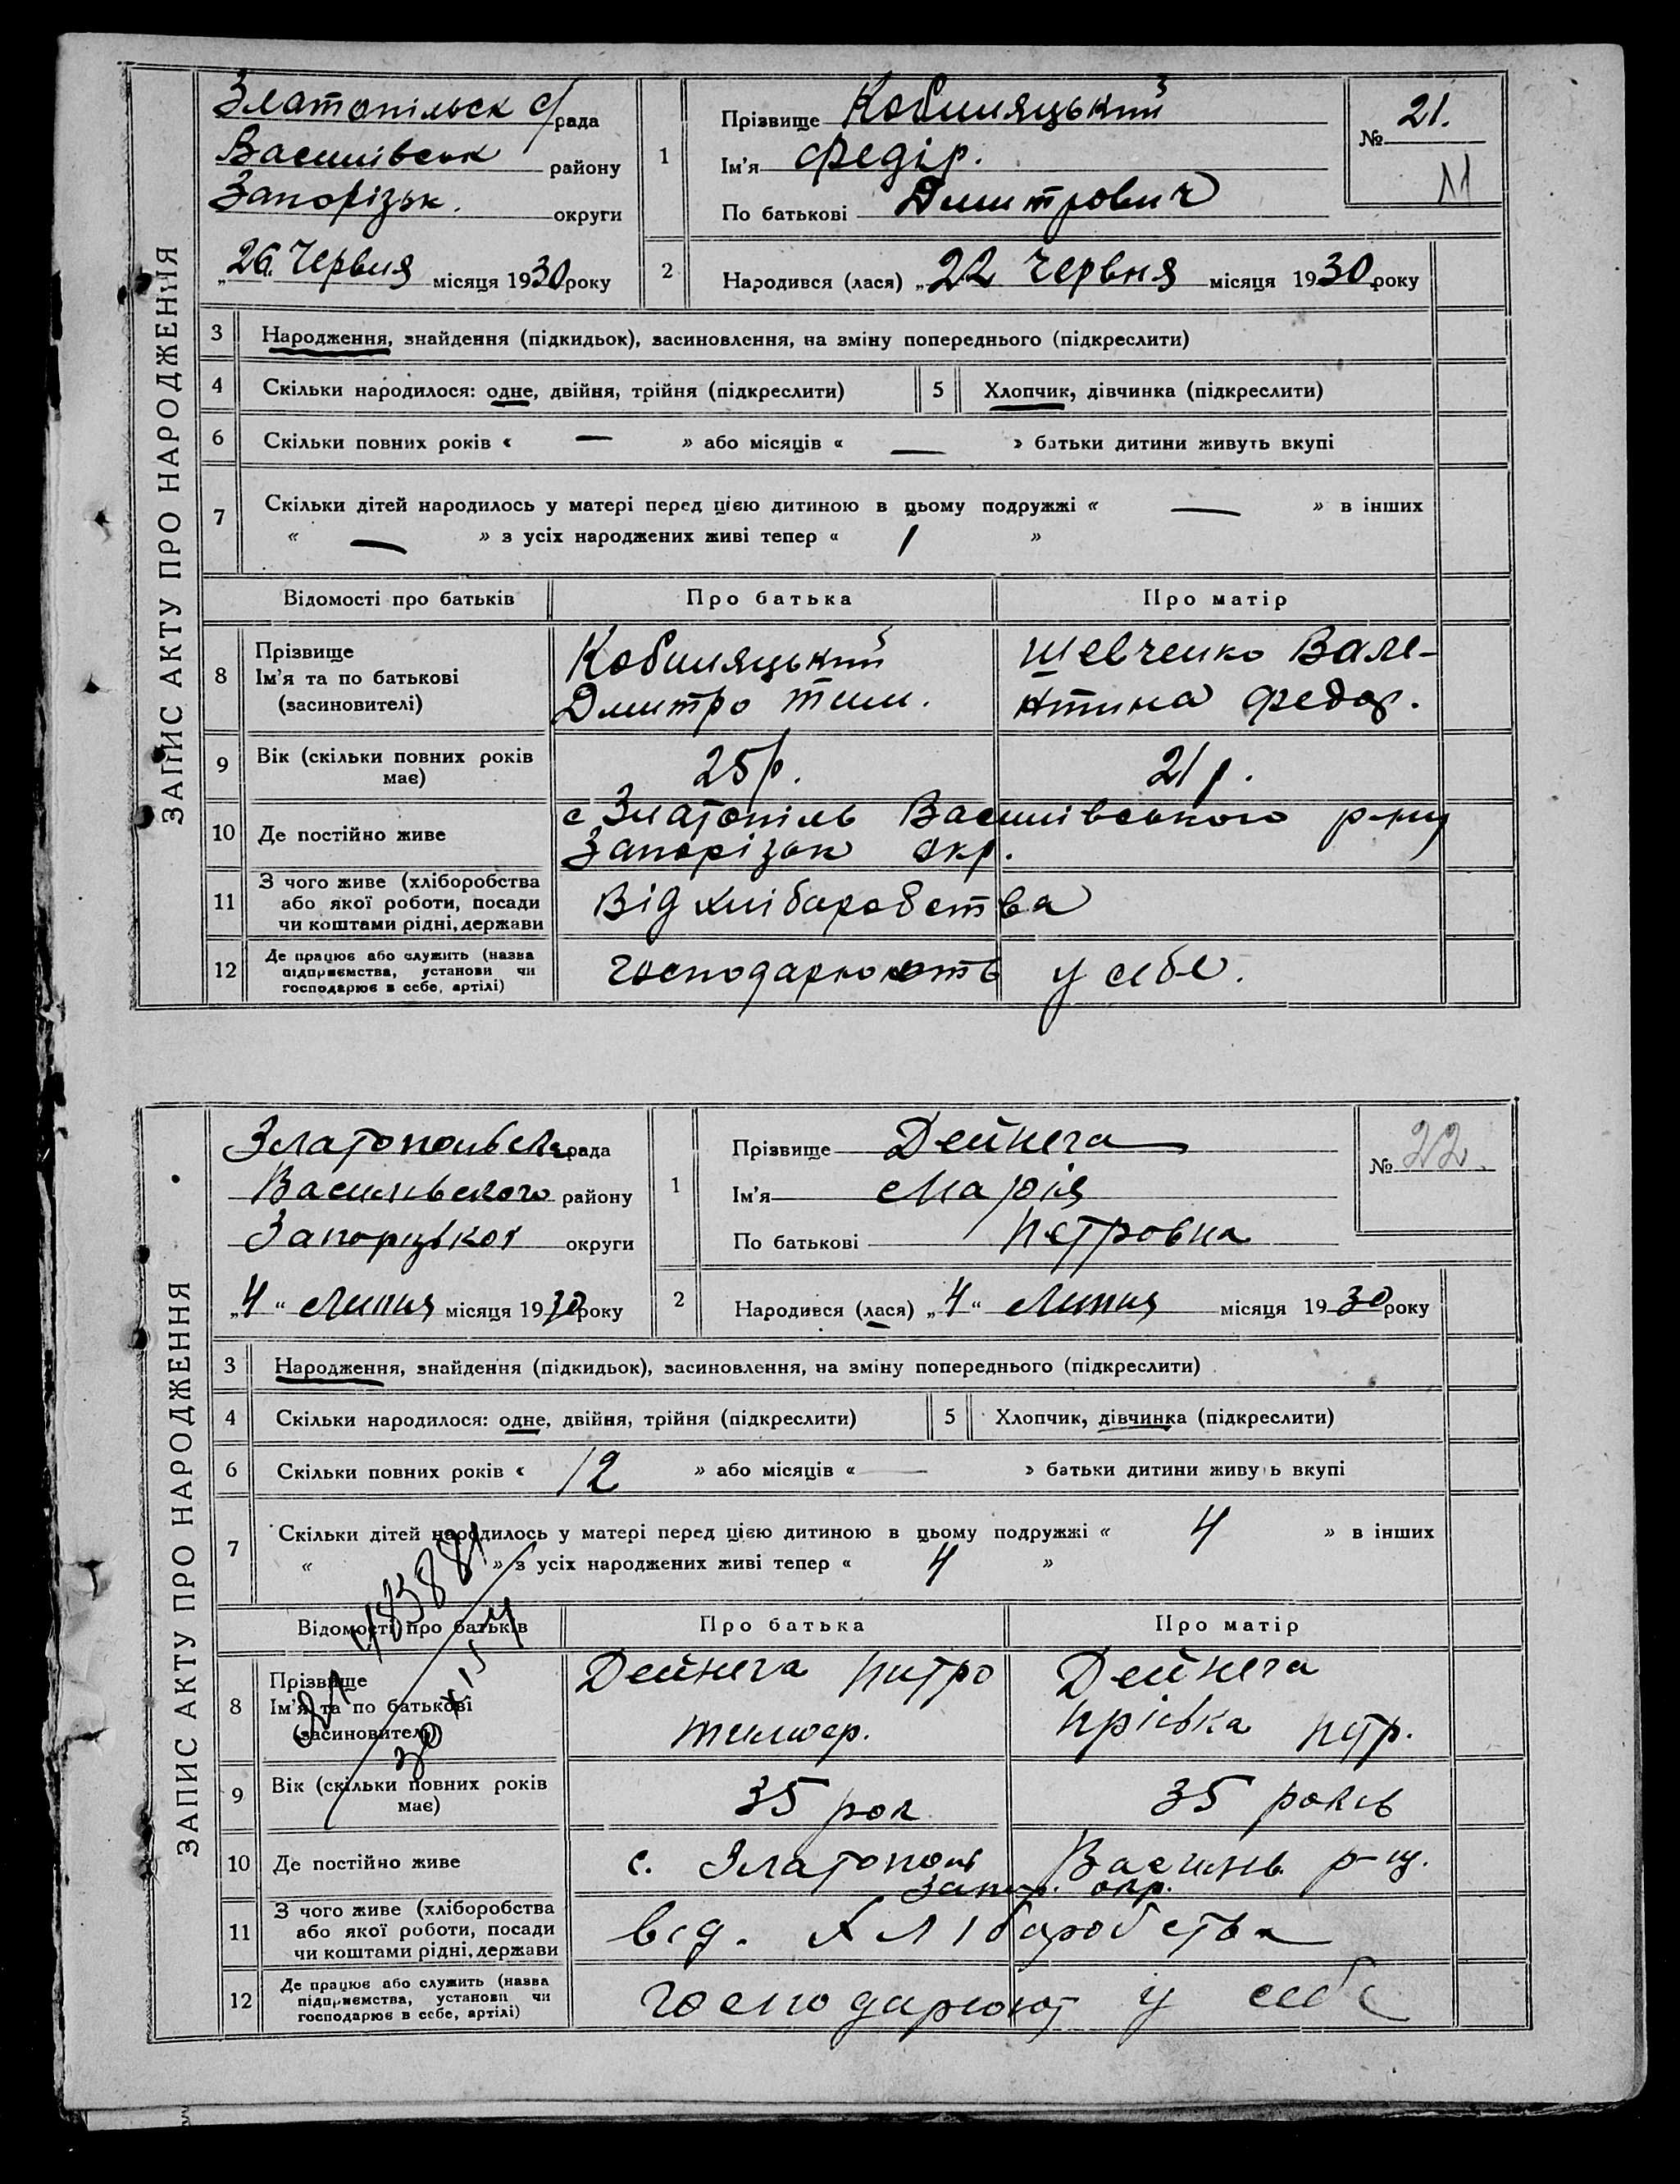 ЗАПИС АКТУ ПРО НАРОДЖЕННЯ
Златопільск с/рада
Василівськ району
Запорізьк. округи
„26. Червня місяця 1930 року
1
Прізвище Кобиляцький
Ім'я Федір.
По батькові Дмитрович
№ 21.
2
Народився (лася) „22 червня місяця 1930 року
3 Народження, знайдення (підкидьок), засиновлення, на зміну попереднього (підкреслити)
4 Скільки народилося: одне, двійня, трійня (підкреслити)
5 Хлопчик, дівчинка (підкреслити)
6 Скільки повних років « — » або місяців « — » батьки дитини живуть вкупі
7 Скільки дітей народилось у матері перед цією дитиною в цьому подружжі « — » в інших
« — » з усіх народжених живі тепер « 1 »
Відомості про батьків Про батька Про матір
8 Прізвище
Ім'я та по батькові
(засиновителі)
Кобиляцький
Дмитро Тим.
Шевченко Вале-
нтина Федор.
9 Вік (скільки повних років
має)
25 р. 21 р.
10 Де постійно живе
с Златопіль Василівського р-ну
Запорізьк окр.
11 З чого живе (хліборобства
або якої роботи, посади
чи коштами рідні, держави
Від хліборобства
12 Де працює або служить (назва
підприємства, установи чи
господарює в себе, артілі)
господарюють у себе.
ЗАПИС АКТУ ПРО НАРОДЖЕННЯ
рада
району
округи
„4“ Липня місяця 1930 року
1
Прізвище Дейнега
Ім'я Марія
По батькові Петровна
№ 22.
2
Народився (лася) „4“ Липня місяця 1930 року
3 Народження, знайдення (підкидьок), засиновлення, на зміну попереднього (підкреслити)
4 Скільки народилося: одне, двійня, трійня (підкреслити)
5 Хлопчик, дівчинка (підкреслити)
6 Скільки повних років « 12 » або місяців « — » батьки дитини живуть вкупі
7 Скільки дітей народилось у матері перед цією дитиною в цьому подружжі « 4 » в інших
« » з усіх народжених живі тепер « 4 »
Відомості про батьків Про батька Про матір
8 Прізвище
Ім'я та по батькові
(засиновителі)
Дейнега
Дейнега
Петр.
9 Вік (скільки повних років
має)
35 рок 35 років
10 Де постійно живе
с. Златополь р-ну.
Запор. окр.
11 З чого живе (хліборобства
або якої роботи, посади
чи коштами рідні, держави
від. хліборобства
12 Де працює або служить (назва
підприємства, установи чи
господарює в себе, артілі)
господарюют у себе